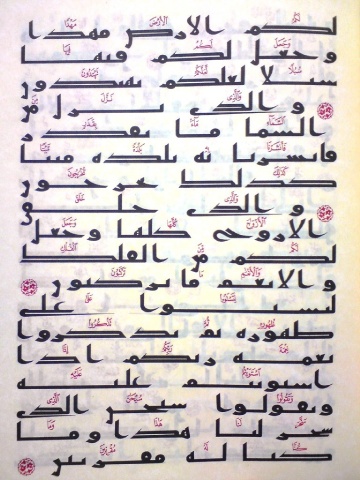 لكم الارض مهدا
وجعل لكم فيها
سبلا لعلكم تهتدون
والذى نزل من
السما ما بقدر
فانشرنا به بلده ميتا
كذلك تخرجون
والذى خلق
الازوج كلها وجعل
لكم من الفلك
والانعم ما تركبون
لتستووا على
ظهوره ثم تذكروا
نعمه ربكم اذا
استويتم عليه
وتقولوا سبحن الذى
سخر لنا هذا وما
كنا له مقرنين